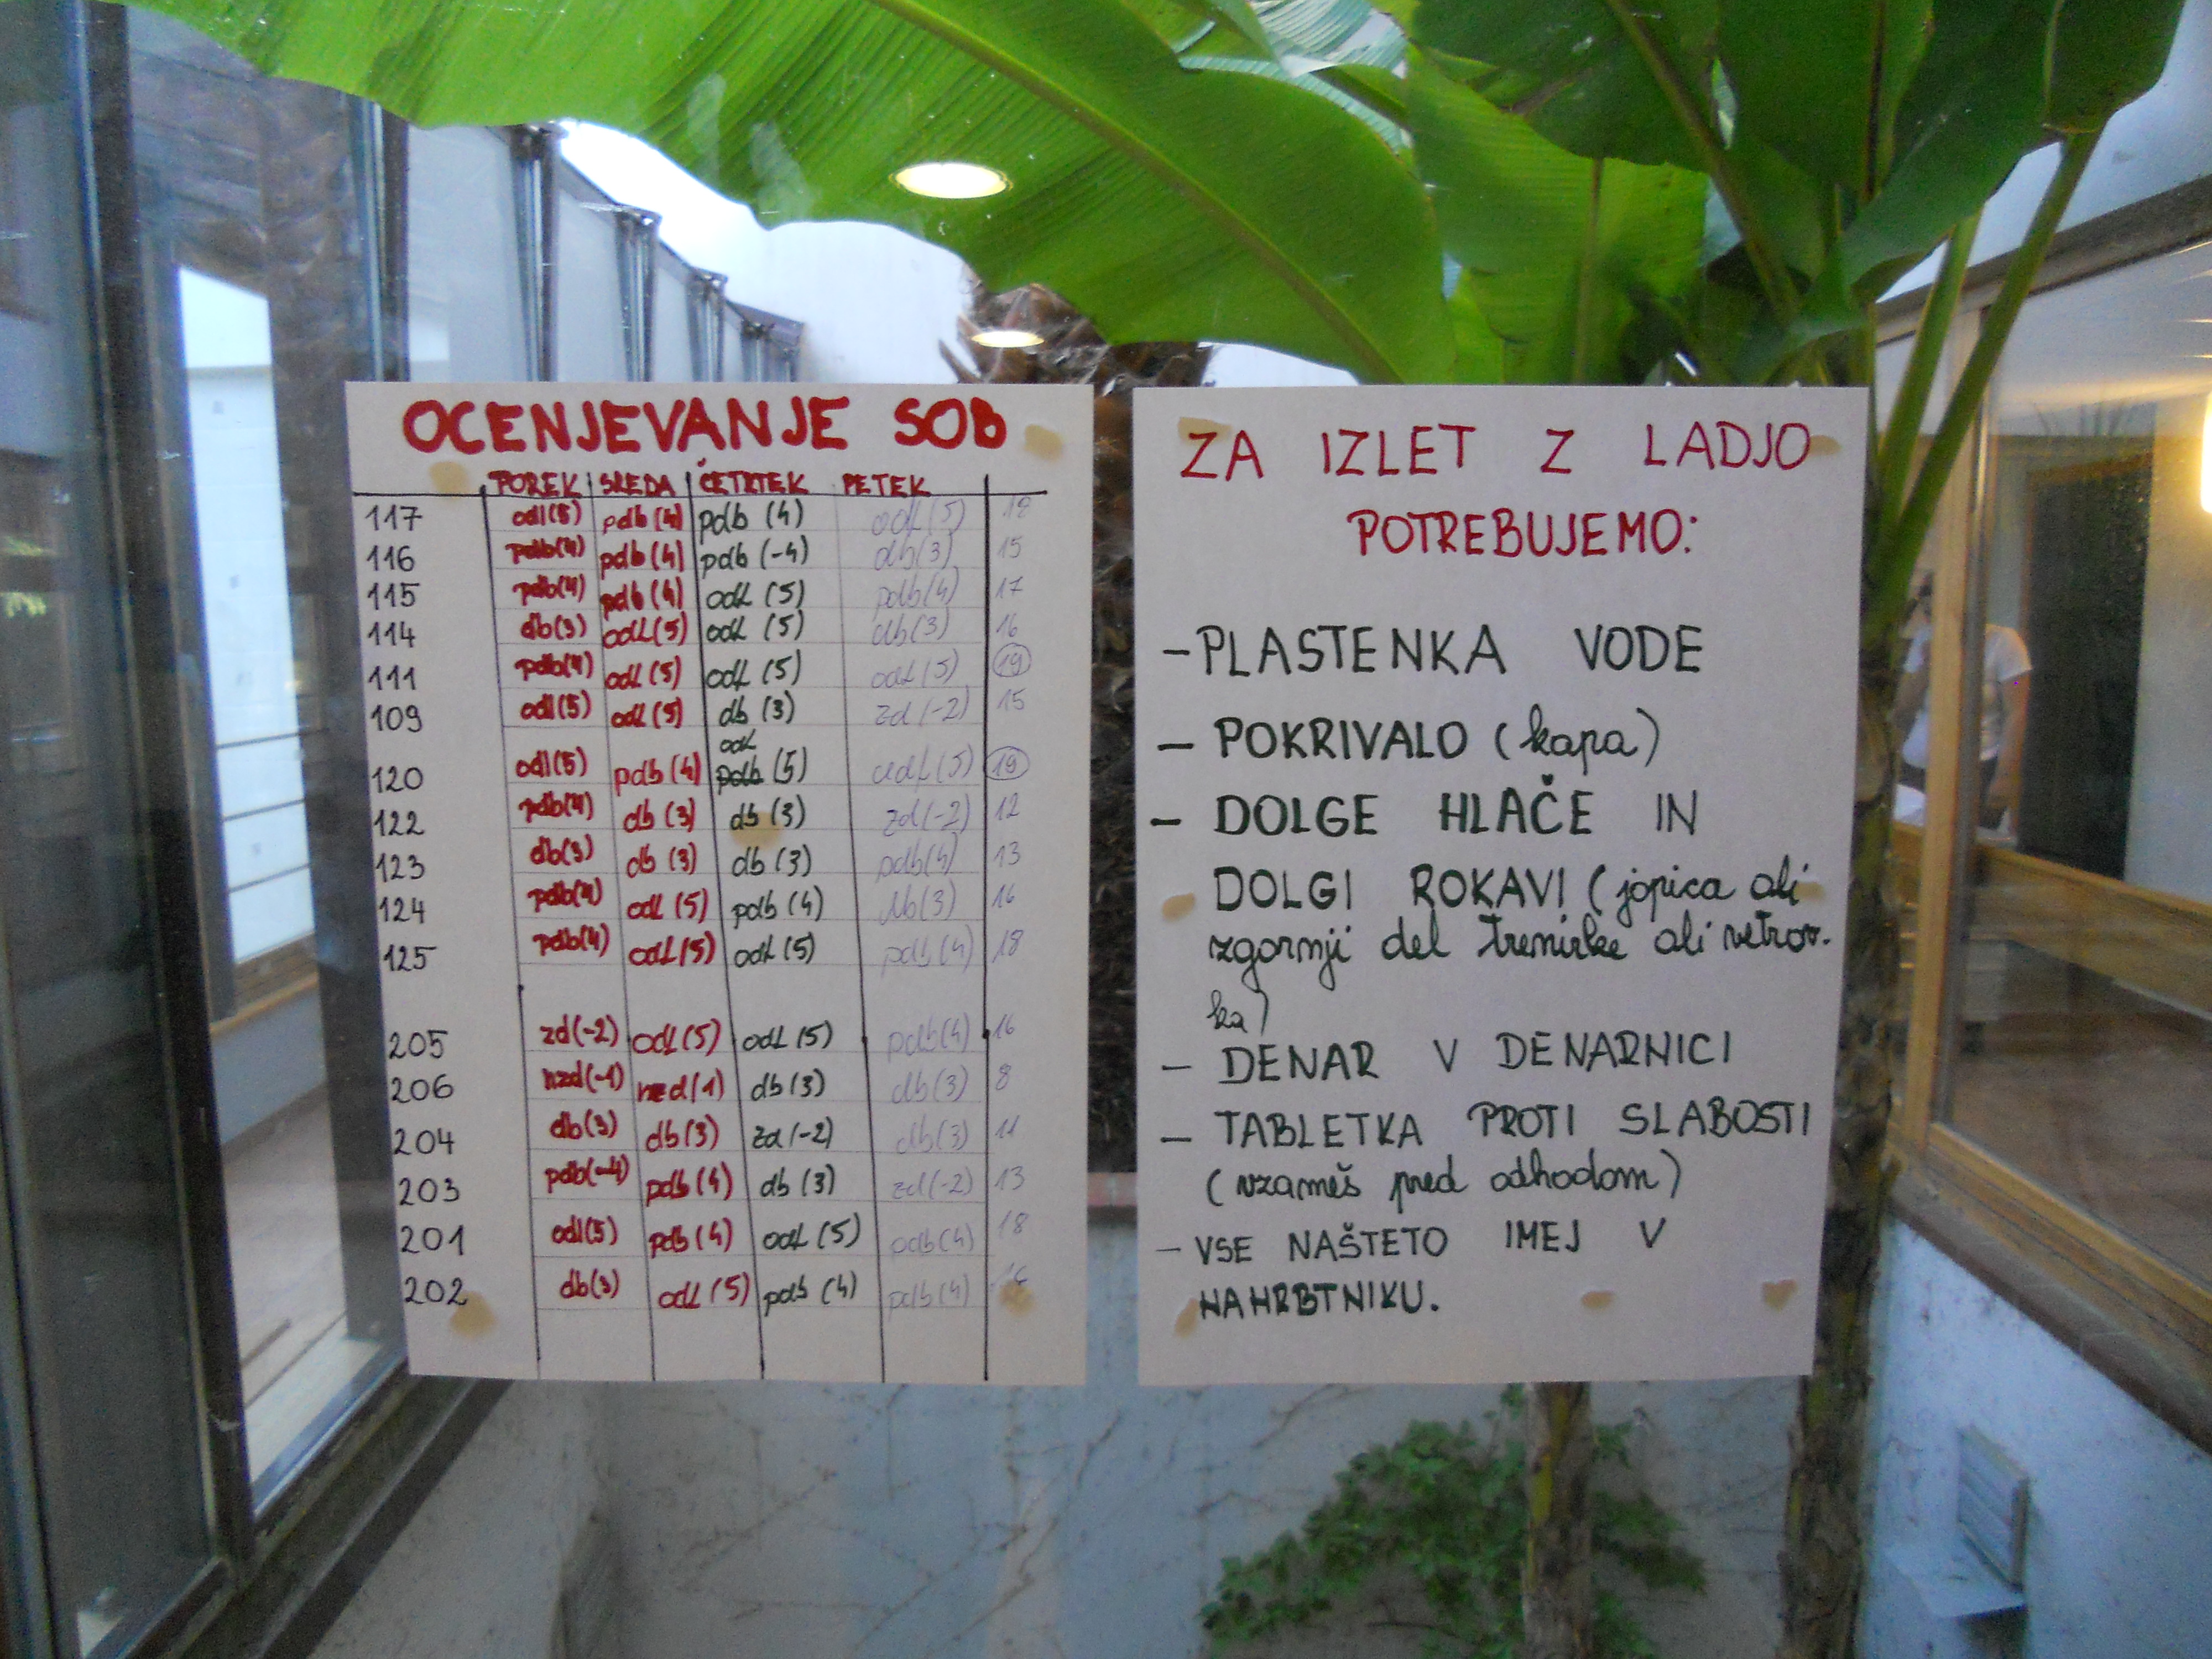 OCENJEVANJE SOB
TOREK SREDA ČETRTEK PETEK
117 odl(5) pdb(4) pdb (4) odl(5) 18
116 pdb(4) pdb(4) pdb (-4) db(3) 15
115 pdb(4) pdb(4) odl (5) pdb(4) 17
114 db(3) odl(5) odl (5) db(3) 16
111 pdb(4) odl(5) odl (5) odl(5) 19
109 odl(5) odl(5) db (3) zd(-2) 15
odl
120 odl(5) pdb(4) pdb (5) odl(5) 19
122 pdb(4) db (3) db (3) zd(-2) 12
123 db(3) db (3) db (3) pdb(4) 13
124 pdb(4) odl (5) pdb (4) db(3) 16
125 pdb(4) odl(5) odl (5) pdb(4) 18
205 zd(-2) odl(5) odl (5) pdb(4) 16
206 nzd(-1) nzd(1) db (3) db(3) 8
204 db(3) db(3) zd(-2) db(3) 11
203 pdb(-4) pdb(4) db (3) zd(-2) 13
201 odl(5) pdb(4) odl (5) pdb(4) 18
202 db(3) odl(5) pdb (4) pdb(4) 16
ZA IZLET Z LADJO
POTREBUJEMO:
-PLASTENKA VODE
- POKRIVALO (kapa)
- DOLGE HLAČE IN
DOLGI ROKAVI (jopica ali
zgornji del trenirke ali vetrov-
ka)
- DENAR V DENARNICI
- TABLETKA PROTI SLABOSTI
(vzameš pred odhodom)
- VSE NAŠTETO IMEJ V
NAHRBTNIKU.